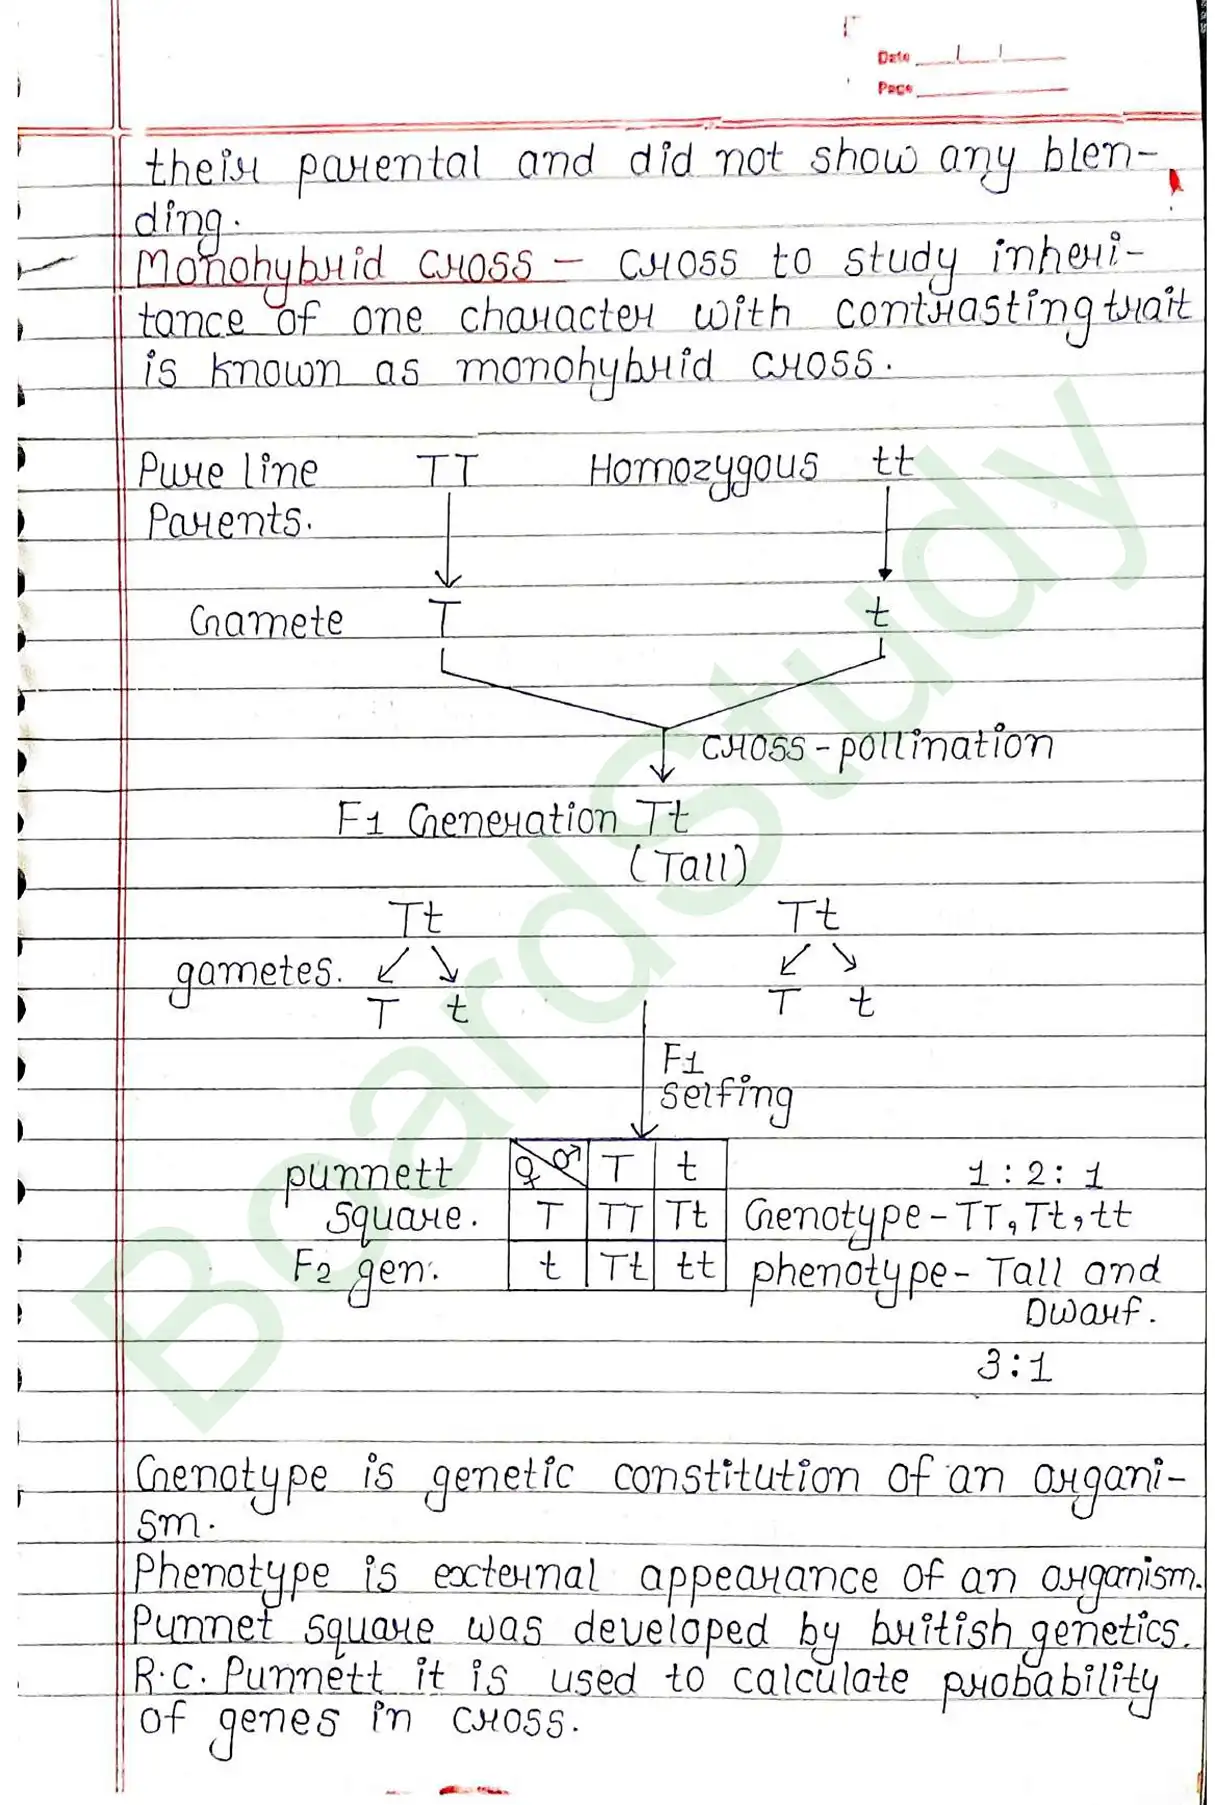 Date
Page
their parental and did not show any blen-
ding.
Monohybrid cross - cross to study inheri-
tance of one character with contrasting trait
is known as monohybrid cross.
Pure line TT Homozygous tt
Parents.
Gamete T t
cross-pollination
F1 Generation Tt
(Tall)
Tt Tt
gametes.
T t T t
F1
selfing
punnett ♀ ♂ T t 1 : 2 : 1
square. T TT Tt Genotype - TT, Tt, tt
F2 gen. t Tt tt phenotype - Tall and
Dwarf.
3 : 1
Genotype is genetic constitution of an organi-
sm.
Phenotype is external appearance of an organism.
Punnet square was developed by british genetics.
R.C. Punnett it is used to calculate probability
of genes in cross.
BoardStudy